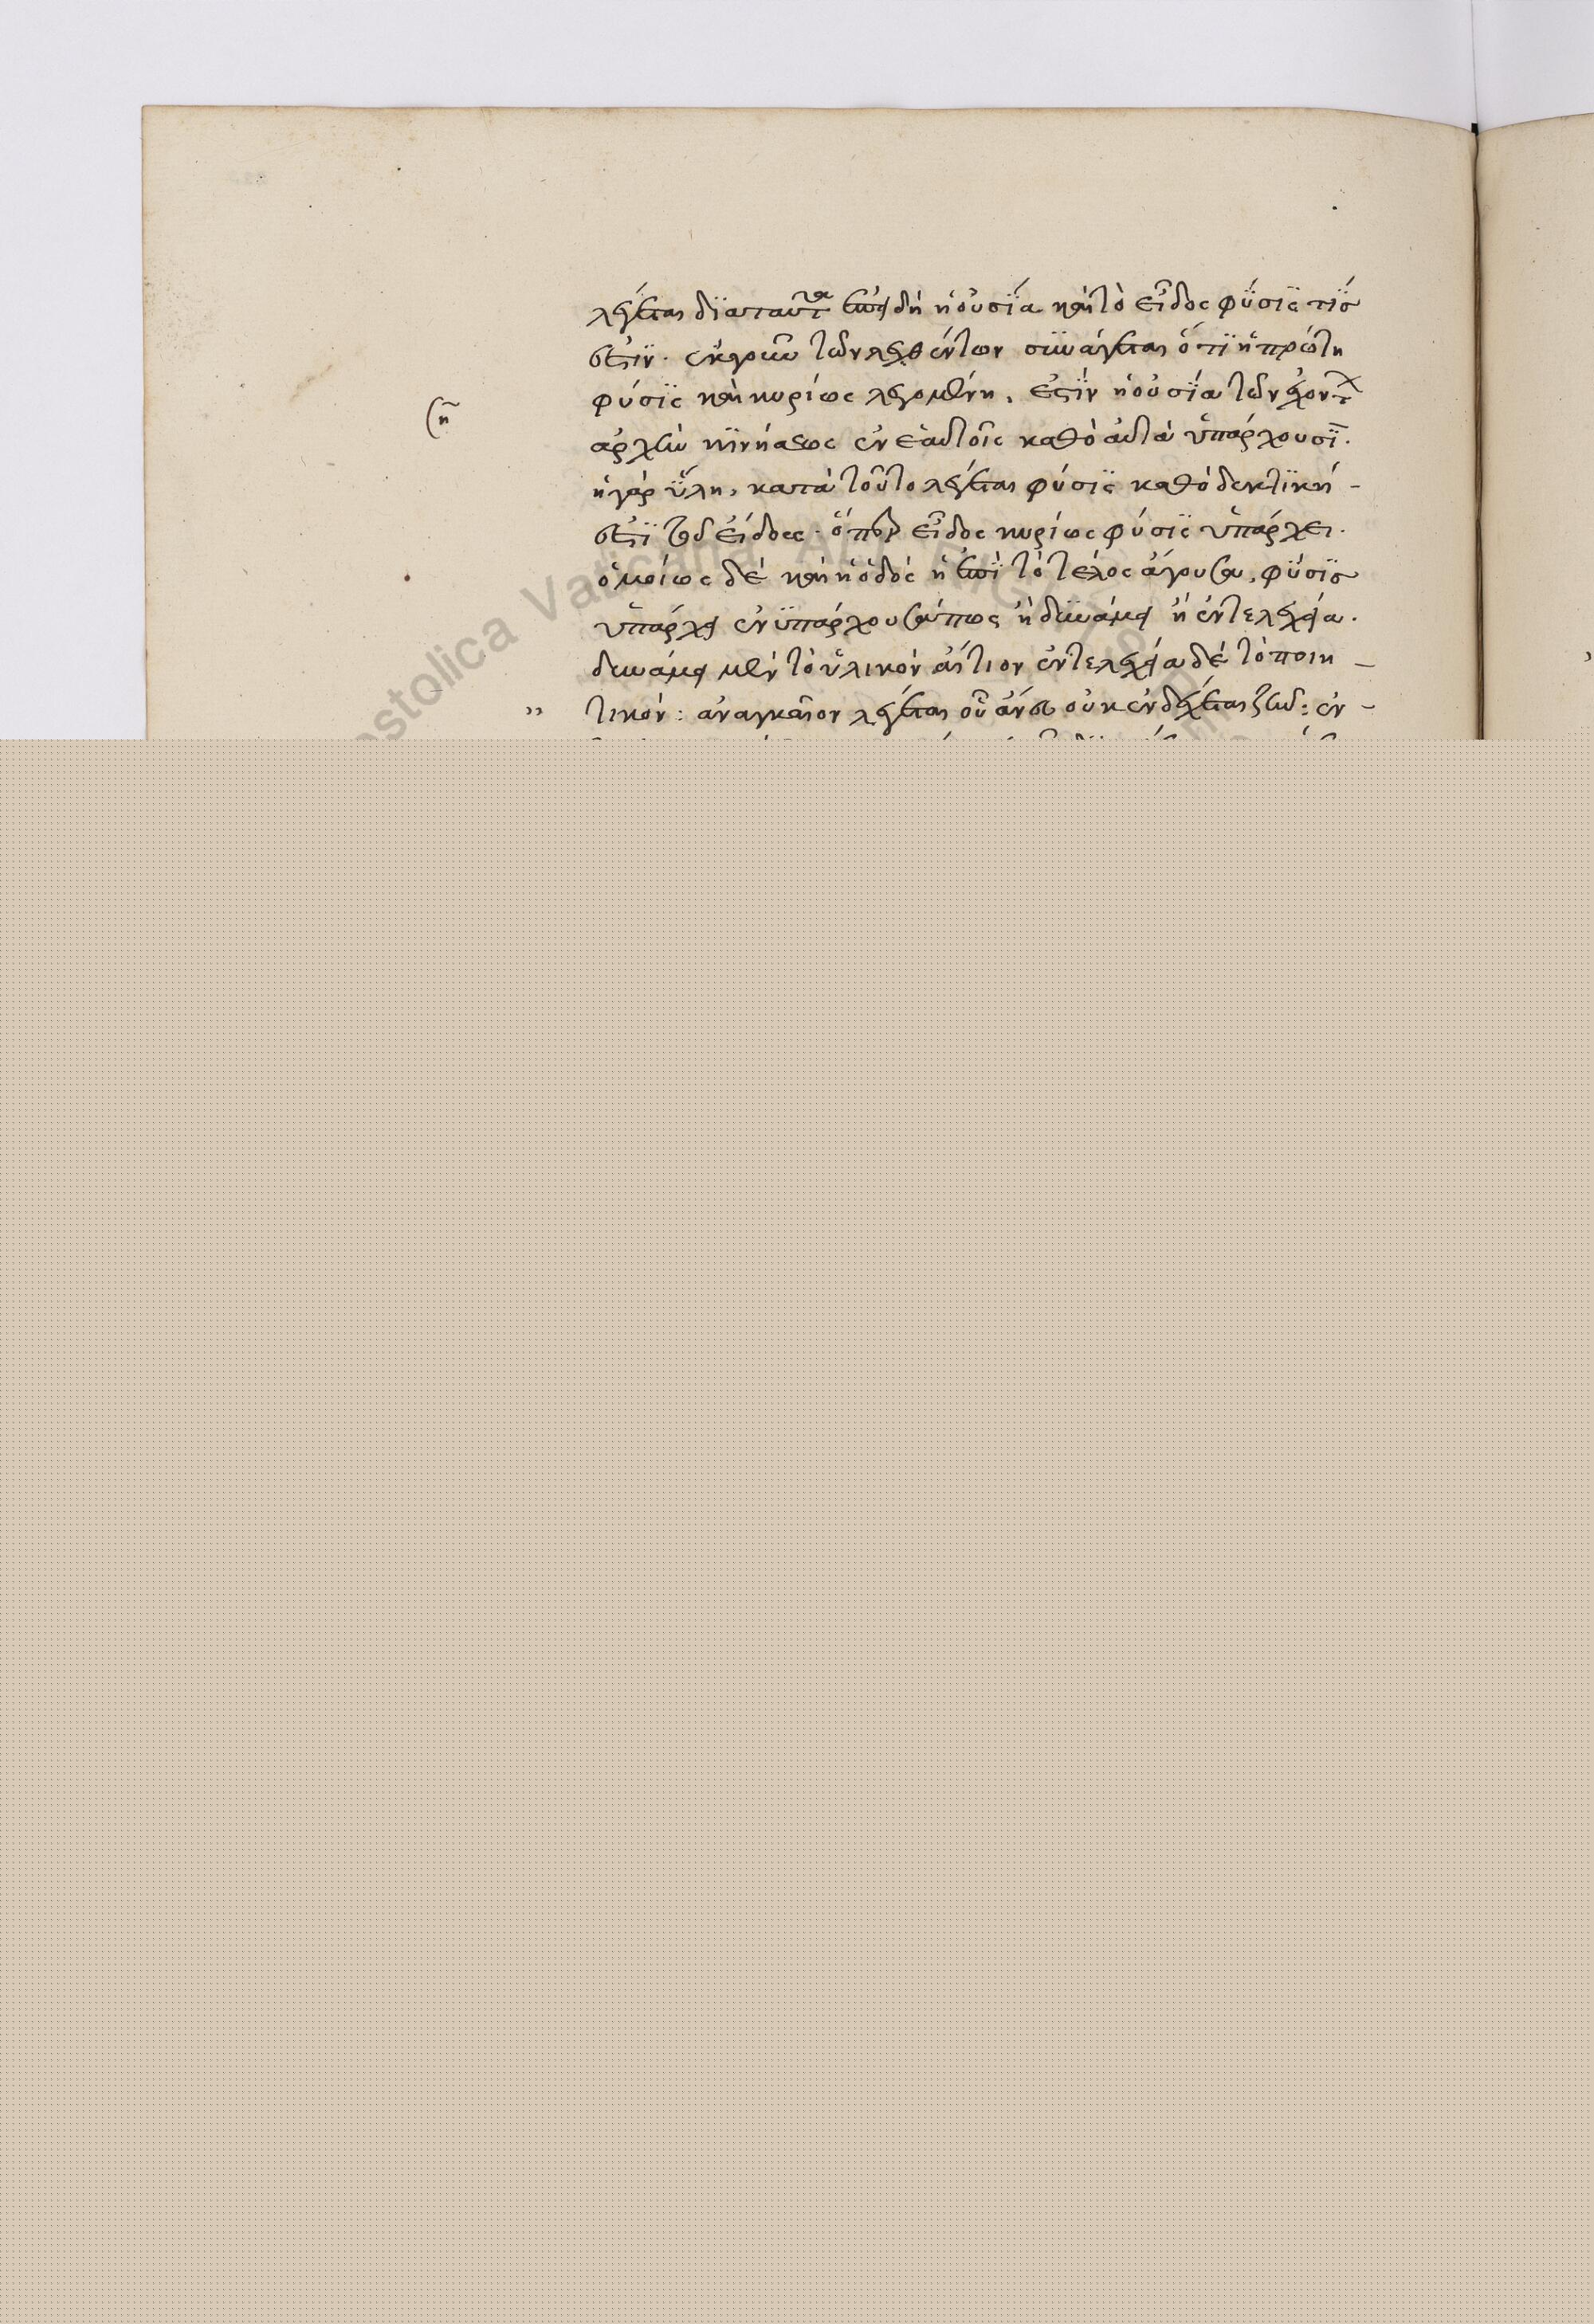 λέγεται διαταῦτα ἐπειδὴ ἡ οὐσία καὶ τὸ εἶδος φύσις τίς
ἐστιν. ἐκ γοῦν τῶν λεχθέντων συνάγεται ὅτι ἡ πρώτη
φύσις καὶ κυρίως λεγομένη, ἐστὶν ἡ οὐσία τῶν ἐχόντων
ση
ἀρχὴν κινήσεως ἐν ἑαυτοῖς καθὸ αὐτὰ ὑπάρχουσι.
ἡ γὰρ ὕλη, κατὰ τοῦτο λέγεται φύσις καθὸ δεκτική
ἐστι τοῦ εἴδους. ὅπερ εἶδος κυρίως φύσις ὑπάρχει.
ὁμοίως δὲ καὶ ἡ ὁδὸς ἡ ἐπὶ τὸ τέλος ἄγουσα, φύσις
ὑπάρχει ἐνυπάρχουσά πως ἢ δυνάμει ἢ ἐντελεχεία.
δυνάμει μὲν τὸ ὑλικὸν αἴτιον ἐντελεχεία δὲ τὸ ποιη
„ τικόν: ἀναγκαῖον λέγεται οὗ ἄνευ οὐκ ἐνδέχεται ζῆν: ἐν